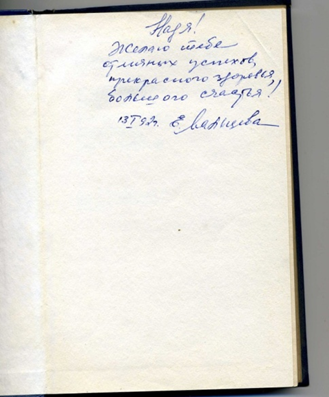 Надя!
Желаю тебе
отличных успехов,
прекрасного здоровья,
большого счастья!
13 I 92г. Е.